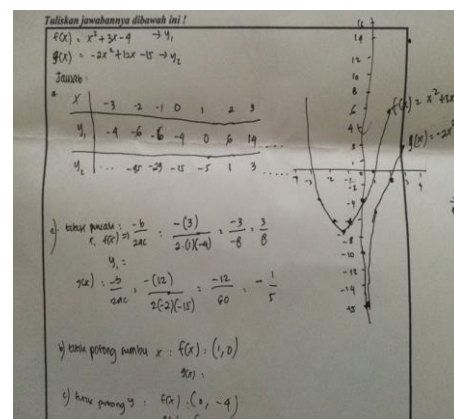 Tuliskan jawabannya dibawah ini !
f(x) = x² + 3x - 4 → y₁
g(x) = -2x² + 12x - 15 → y₂
Jawab :
a.
x -3 -2 -1 0 1 2 3
y₁ -4 -6 -6 -4 0 6 14 ....
y₂ ... -45 -29 -15 -5 1 3 ....
f(x) = x² + 3x
g(x) = -2x²
titik puncak : -b / 2ac : -(3) / 2.(1)(-4) = -3 / -8 = 3 / 8
x, f(x) =>
y₁ :
g(x) : -b / 2ac = -(12) / 2(-2)(-15) = -12 / 60 = - 1 / 5
b) titik potong sumbu x : f(x) : (1, 0)
g(x) :
c) titik potong y : f(x) : (0, -4)